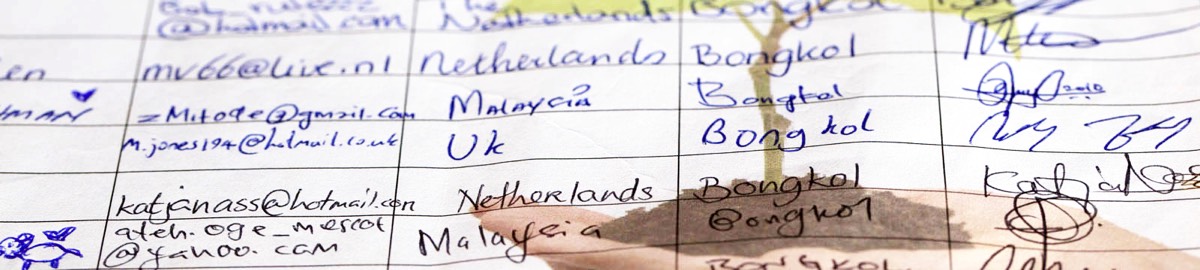 @hotmail.com Netherlands Bongkol
en mv66@live.nl Netherlands Bongkol
=Mitode@gmail.com Malaycia Bongkol
M.jones194@hotmail.co.uk Uk Bongkol
katjanass@hotmail.com Netherlands Bongkol Katja
ateh.oge_mescot Malaycia Bongkol
@yahoo.com
Bongkol